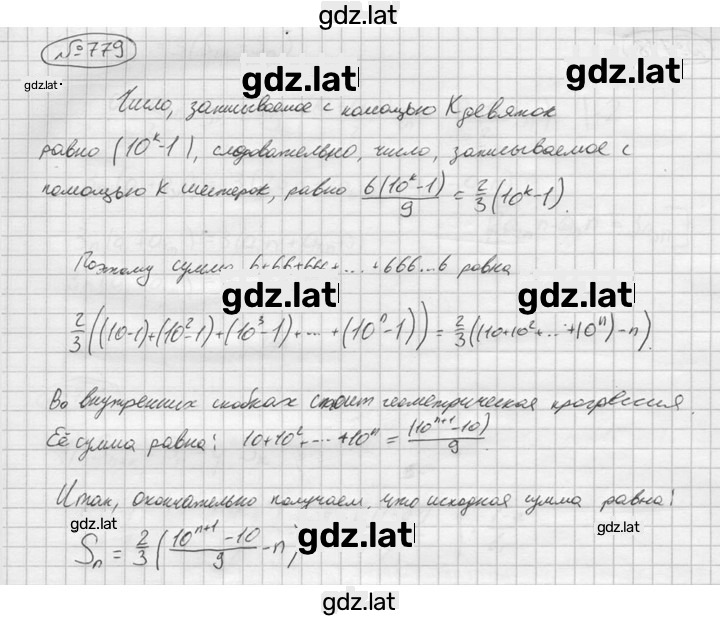 gdz.lat
№779
gdz.lat
gdz.lat gdz.lat
Число, записываемое с помощью K девяток
равно (10^k-1), следовательно, число, записываемое с
помощью K шестерок, равно 6(10^k-1)/9 = 2/3(10^k-1).
Поэтому сумма 6+66+666+...+666...6 равна
gdz.lat gdz.lat
2/3((10-1)+(10^2-1)+(10^3-1)+...+(10^n-1)) = 2/3((10+10^2+...+10^n)-n).
Во внутренних скобках стоит геометрическая прогрессия.
Её сумма равна: 10+10^2+...+10^n = (10^(n+1)-10)/9.
Итак, окончательно получаем, что исходная сумма равна:
gdz.lat gdz.lat gdz.lat
S_n = 2/3(10^(n+1)-10/9-n)
gdz.lat